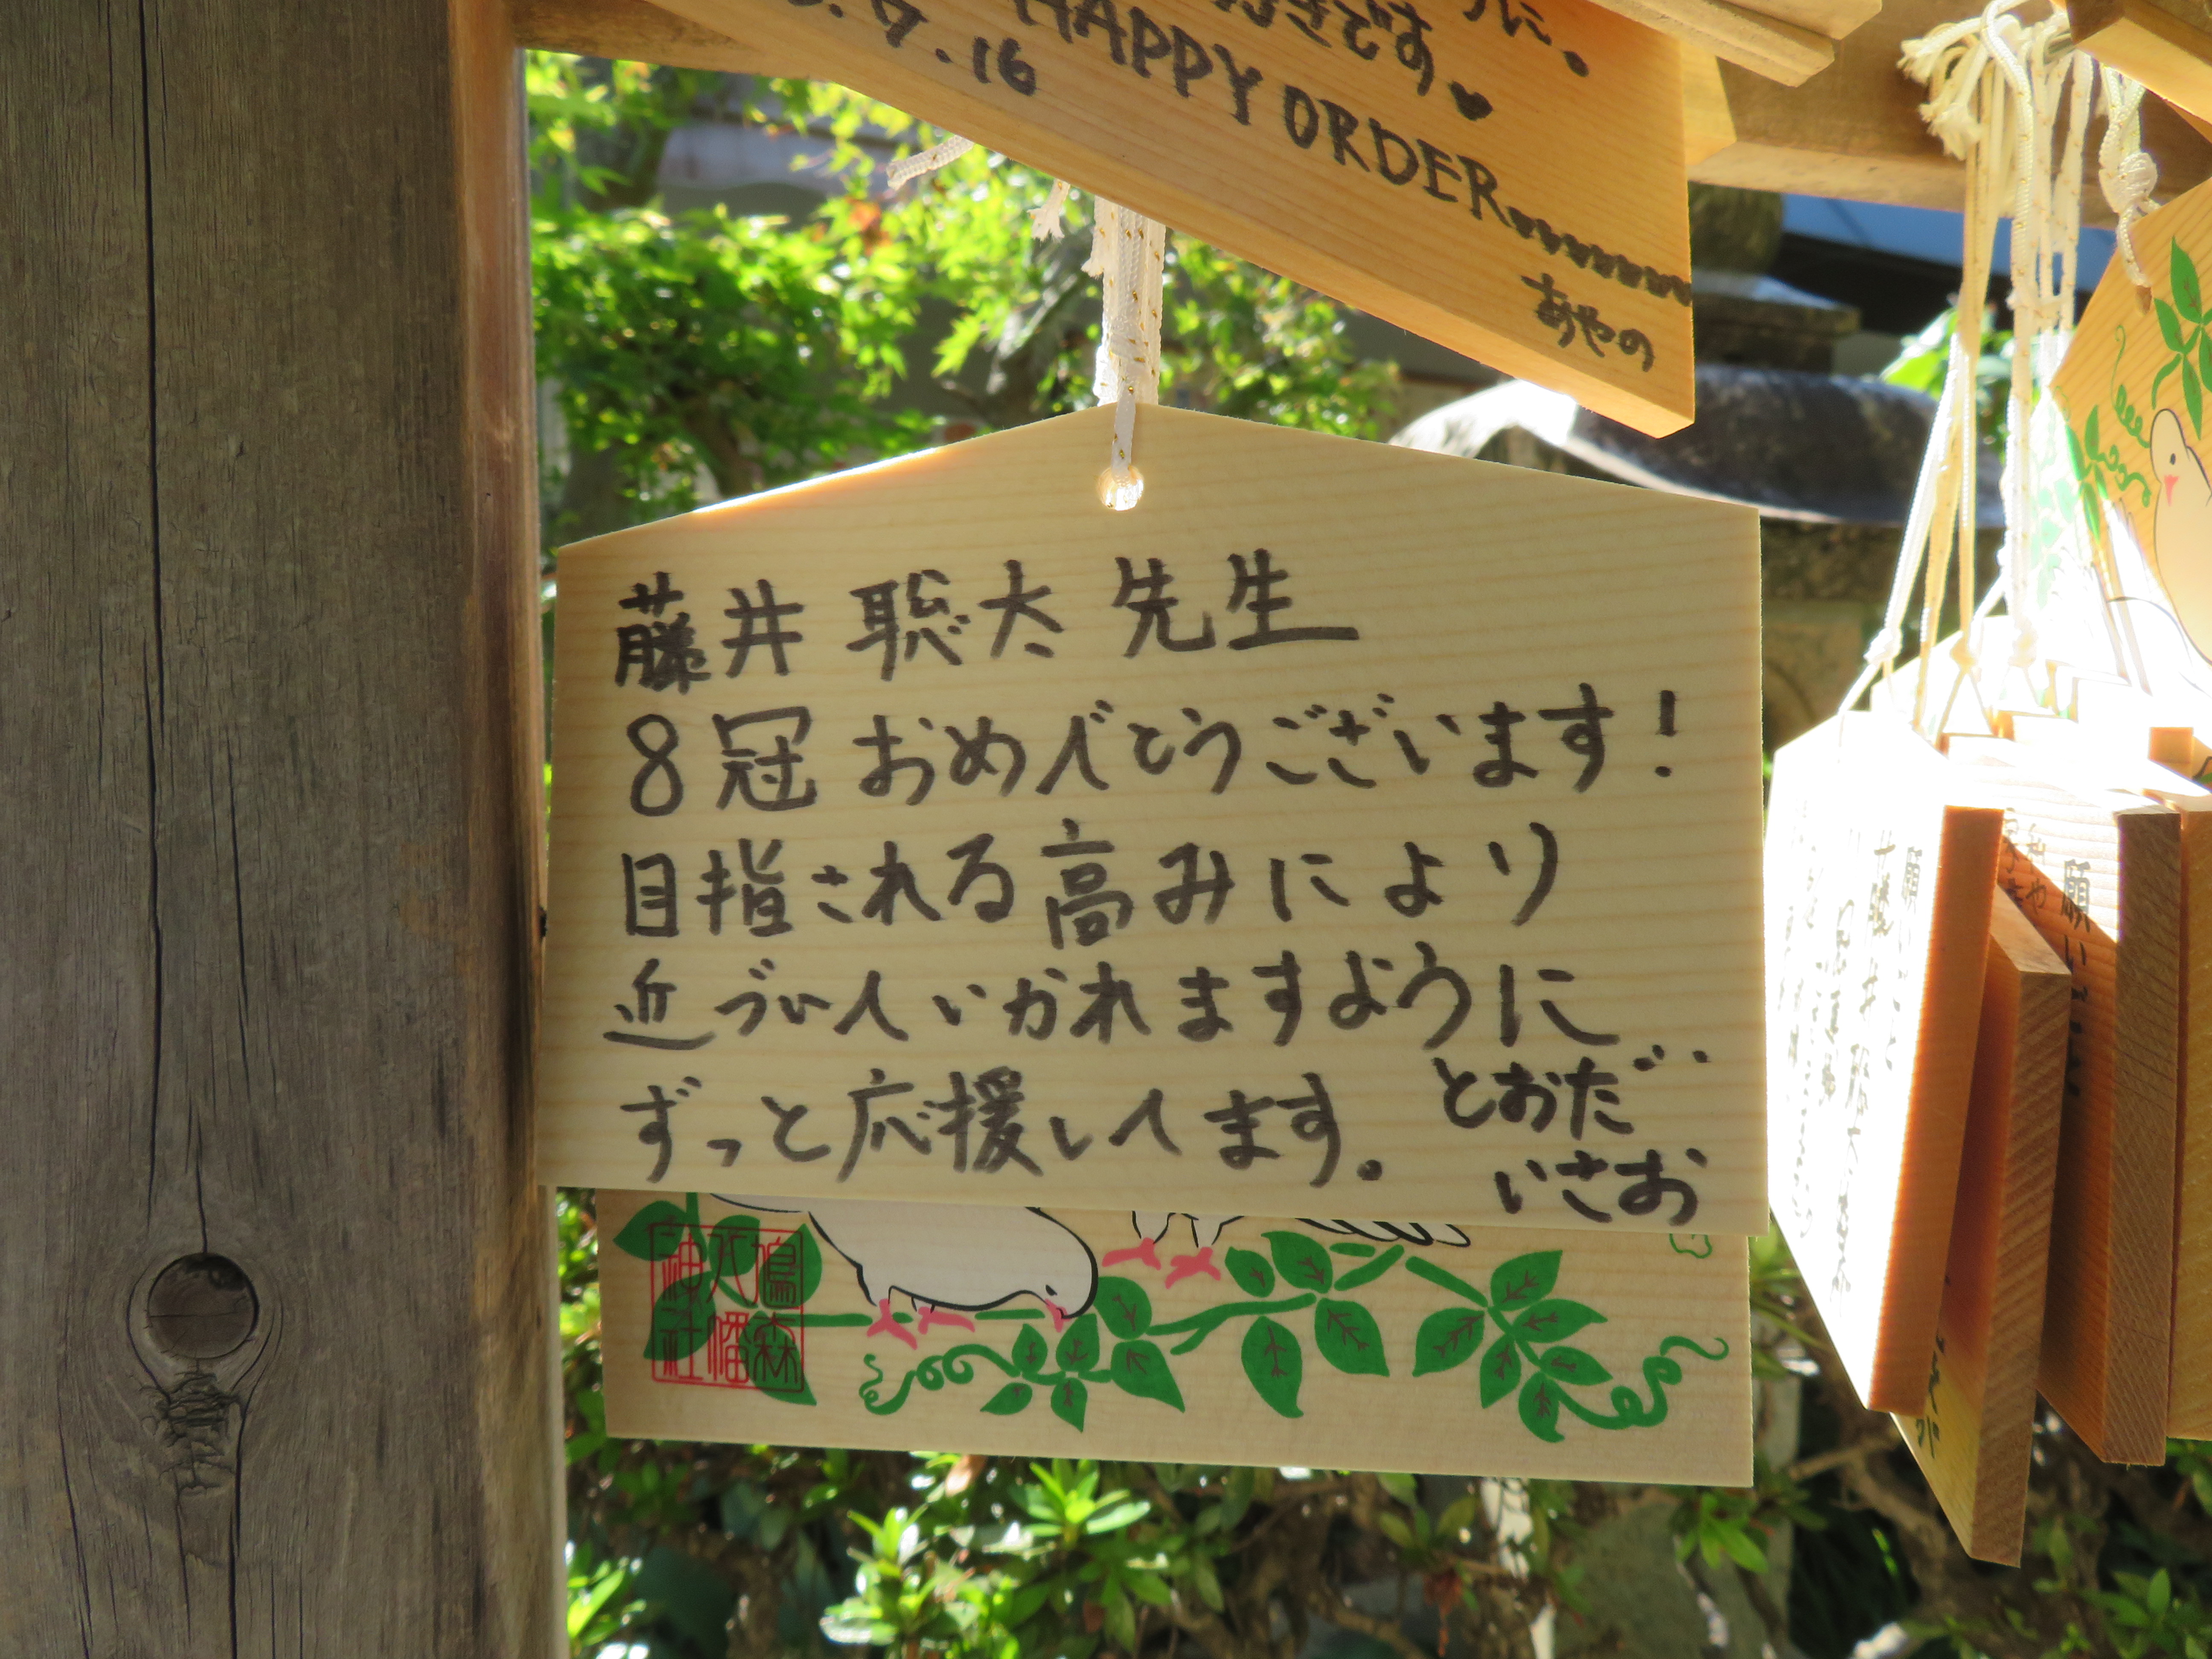 .7.16
HAPPY ORDER
きです♥
に。
あやの
藤井 聡太 先生
8冠 おめでとうございます!
目指される高みにより
近づいていかれますように
ずっと応援しています。
とおだ
いさお
鳩森
八幡
神社
願い